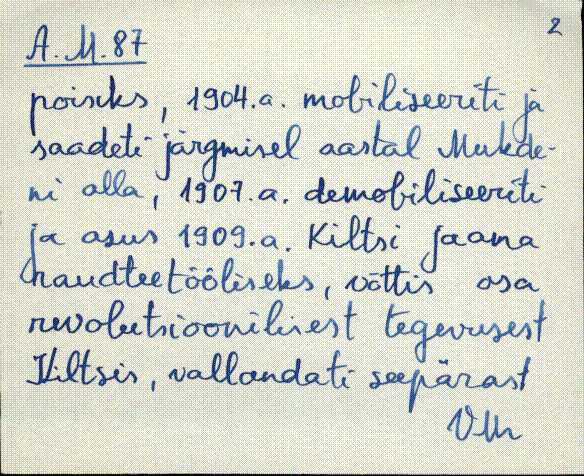 2
A. M. 87
poisiks, 1904.a. mobiliseeriti ja
saadeti järgmisel aastal Mukde-
ni alla, 1907.a. demobiliseeriti
ja asus 1909.a. Kiltsi jaama
raudteetööliseks, võttis osa
revolutsioonilisest tegevusest
Kiltsis, vallandati seepärast